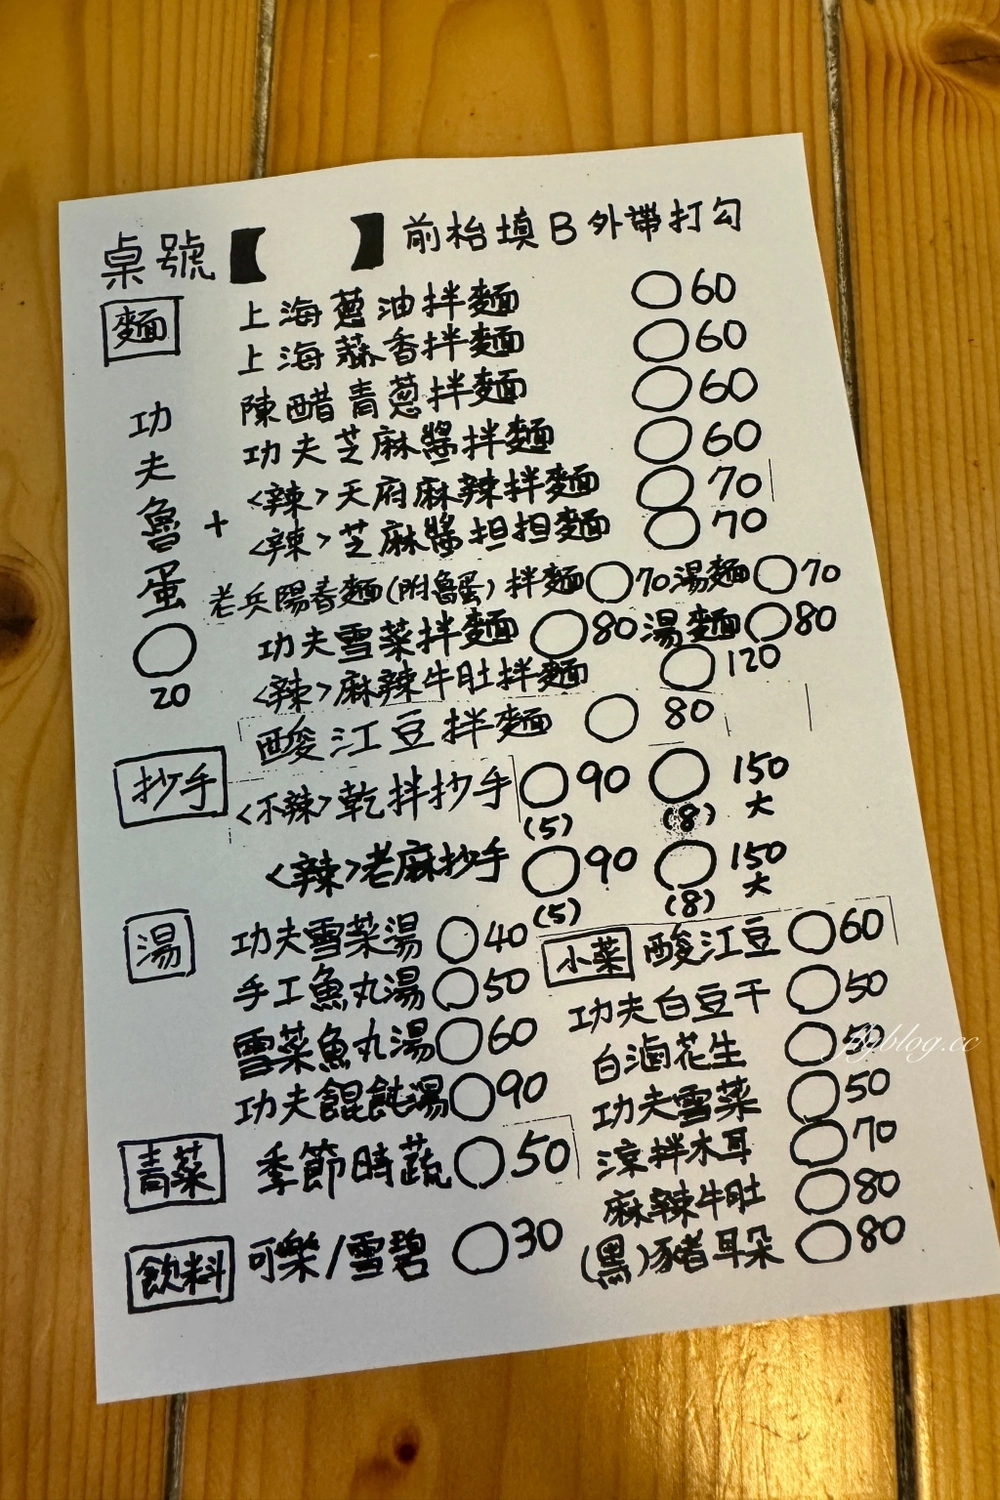 桌號【 】前枱填B外帶打勾
麵
上海蔥油拌麵 ○60
上海蒜香拌麵 ○60
陳醋青蔥拌麵 ○60
功夫芝麻醬拌麵 ○60
<辣>天府麻辣拌麵 ○70
<辣>芝麻醬担担麵 ○70
老兵陽春麵(附魯蛋) 拌麵○70湯麵○70
功夫雪菜拌麵 ○80湯麵○80
<辣>麻辣牛肚拌麵 ○120
酸江豆拌麵 ○ 80
功夫魯蛋 +
○
20
抄手
<不辣>乾拌抄手 ○90 ○ 150
(5) (8) 大
<辣>老麻抄手 ○90 ○ 150
(5) (8) 大
湯
功夫雪菜湯 ○40
手工魚丸湯 ○50
雪菜魚丸湯 ○60
功夫餛飩湯 ○90
小菜
酸江豆 ○60
功夫白豆干 ○50
白滷花生 ○50
功夫雪菜 ○50
涼拌木耳 ○70
麻辣牛肚 ○80
(黑)豬耳朵 ○80
青菜
季節時蔬 ○50
飲料
可樂/雪碧 ○30
flyblog.cc